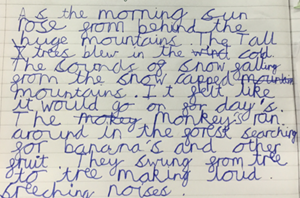 As the morning sun
rose from behind the
huge mountains. The Tall
X tress blew in the wind cold.
The sounds of snow falling
from the snow capped mountain
mountains. It felt like
it would go on for day's.
The mokey Monkey's ran
around in the forest searching
for banana's and other
fruit. They swung from tree
to tree making loud
screching noises.